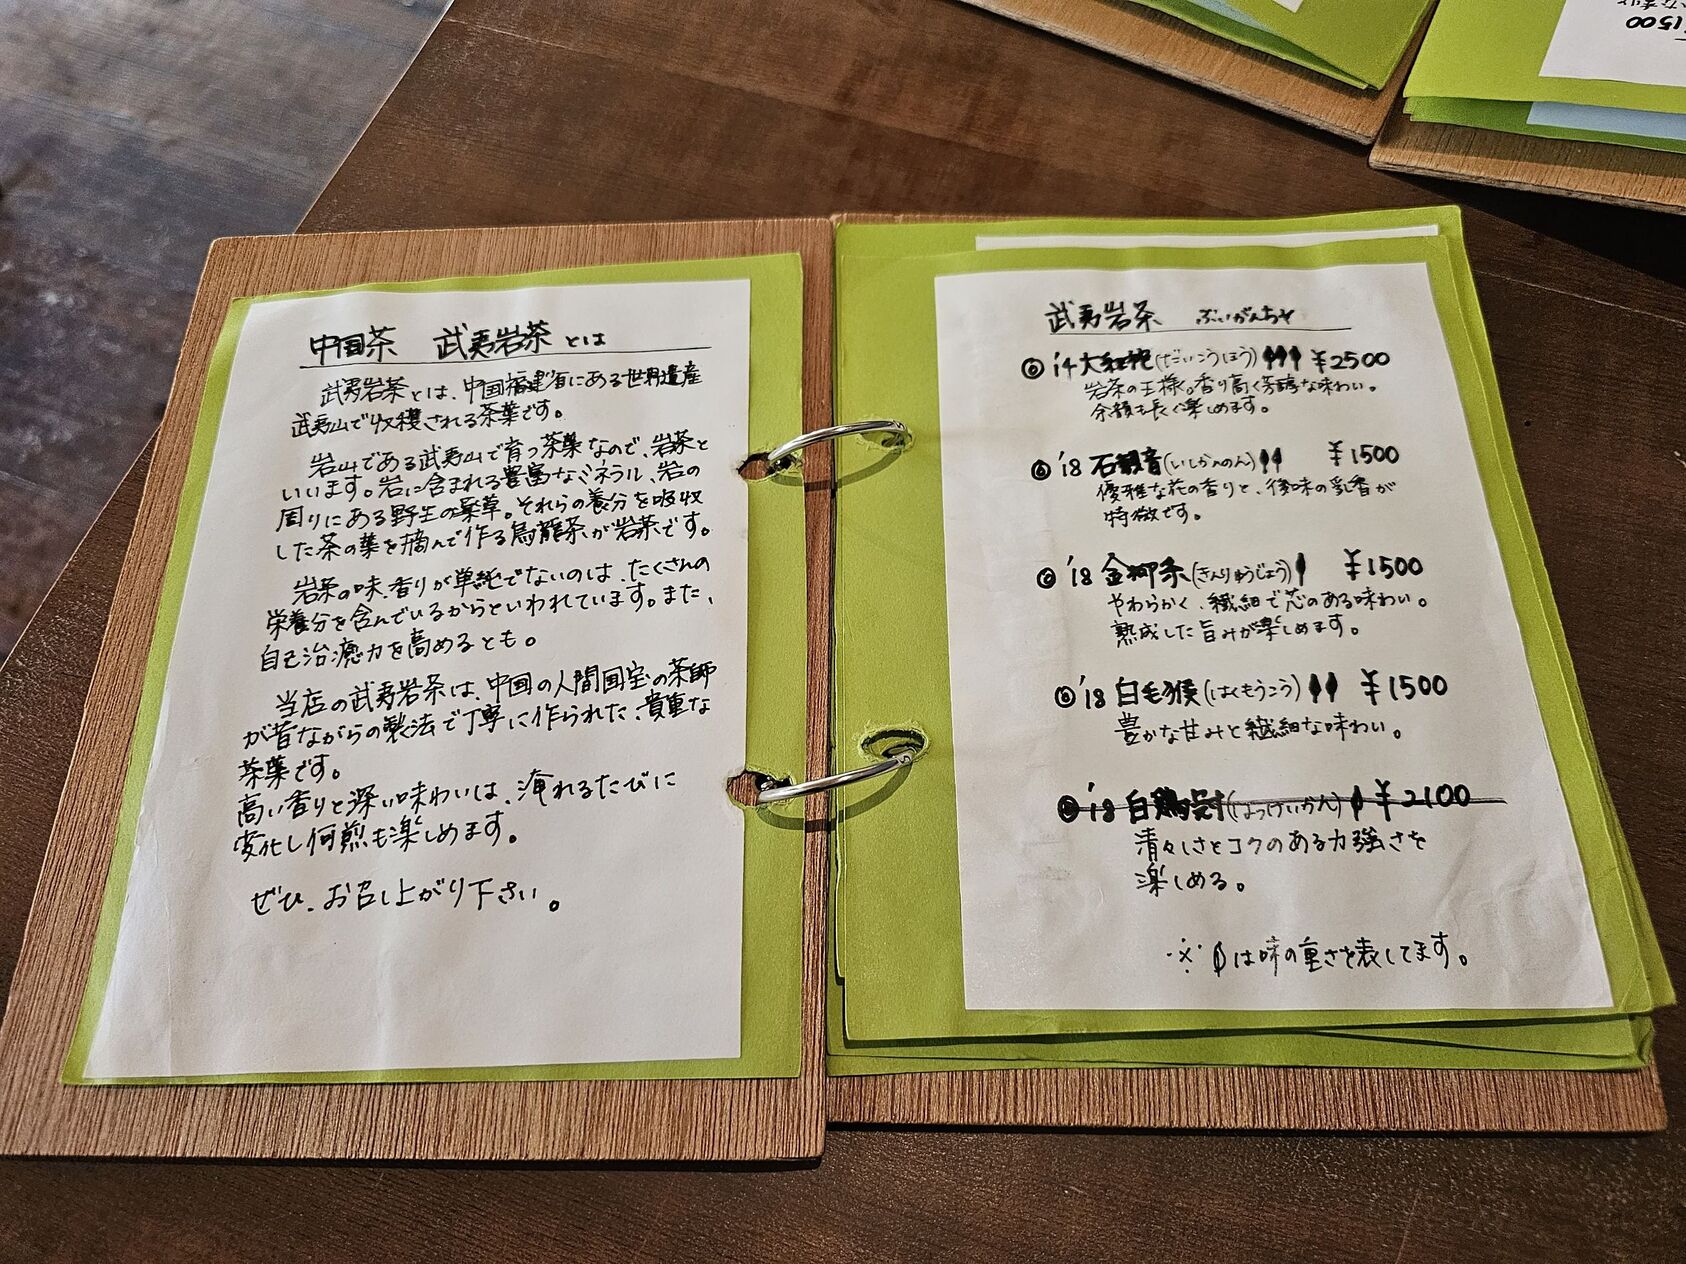 中国茶 武夷岩茶とは
武夷岩茶とは、中国福建省にある世界遺産
武夷山で収穫される茶葉です。
岩山である武夷山で育つ茶葉なので、岩茶と
いいます。岩に含まれる豊富なミネラル、岩の
周りにある野生の薬草。それらの養分を吸収
した茶の葉を摘んで作る烏龍茶が岩茶です。
岩茶の味、香りが単純でないのは、たくさんの
栄養分を含んでいるからといわれています。また、
自己治癒力を高めるとも。
当店の武夷岩茶は、中国の人間国宝の茶師
が昔ながらの製法で丁寧に作られた、貴重な
茶葉です。
高い香りと深い味わいは、淹れるたびに
変化し何煎も楽しめます。
ぜひ、お召し上がり下さい。
武夷岩茶 ぶいがんちゃ
'14 大紅袍(だいこうほう) ¥2500
岩茶の王様。香り高く芳醇な味わい。
余韻も長く楽しめます。
'18 石観音(いしかんのん) ¥1500
優雅な花の香りと、後味の乳香が
特徴です。
'18 金柳条(きんりゅうじょう) ¥1500
やわらかく、繊細で芯のある味わい。
熟成した旨みが楽しめます。
'18 白毛猴(はくもうこう) ¥1500
豊かな甘みと繊細な味わい。
'18 白鶏冠(はっけいかん) ¥2100
清々しさとコクのある力強さを
楽しめる。
※ は味の重さを表してます。
¥1500